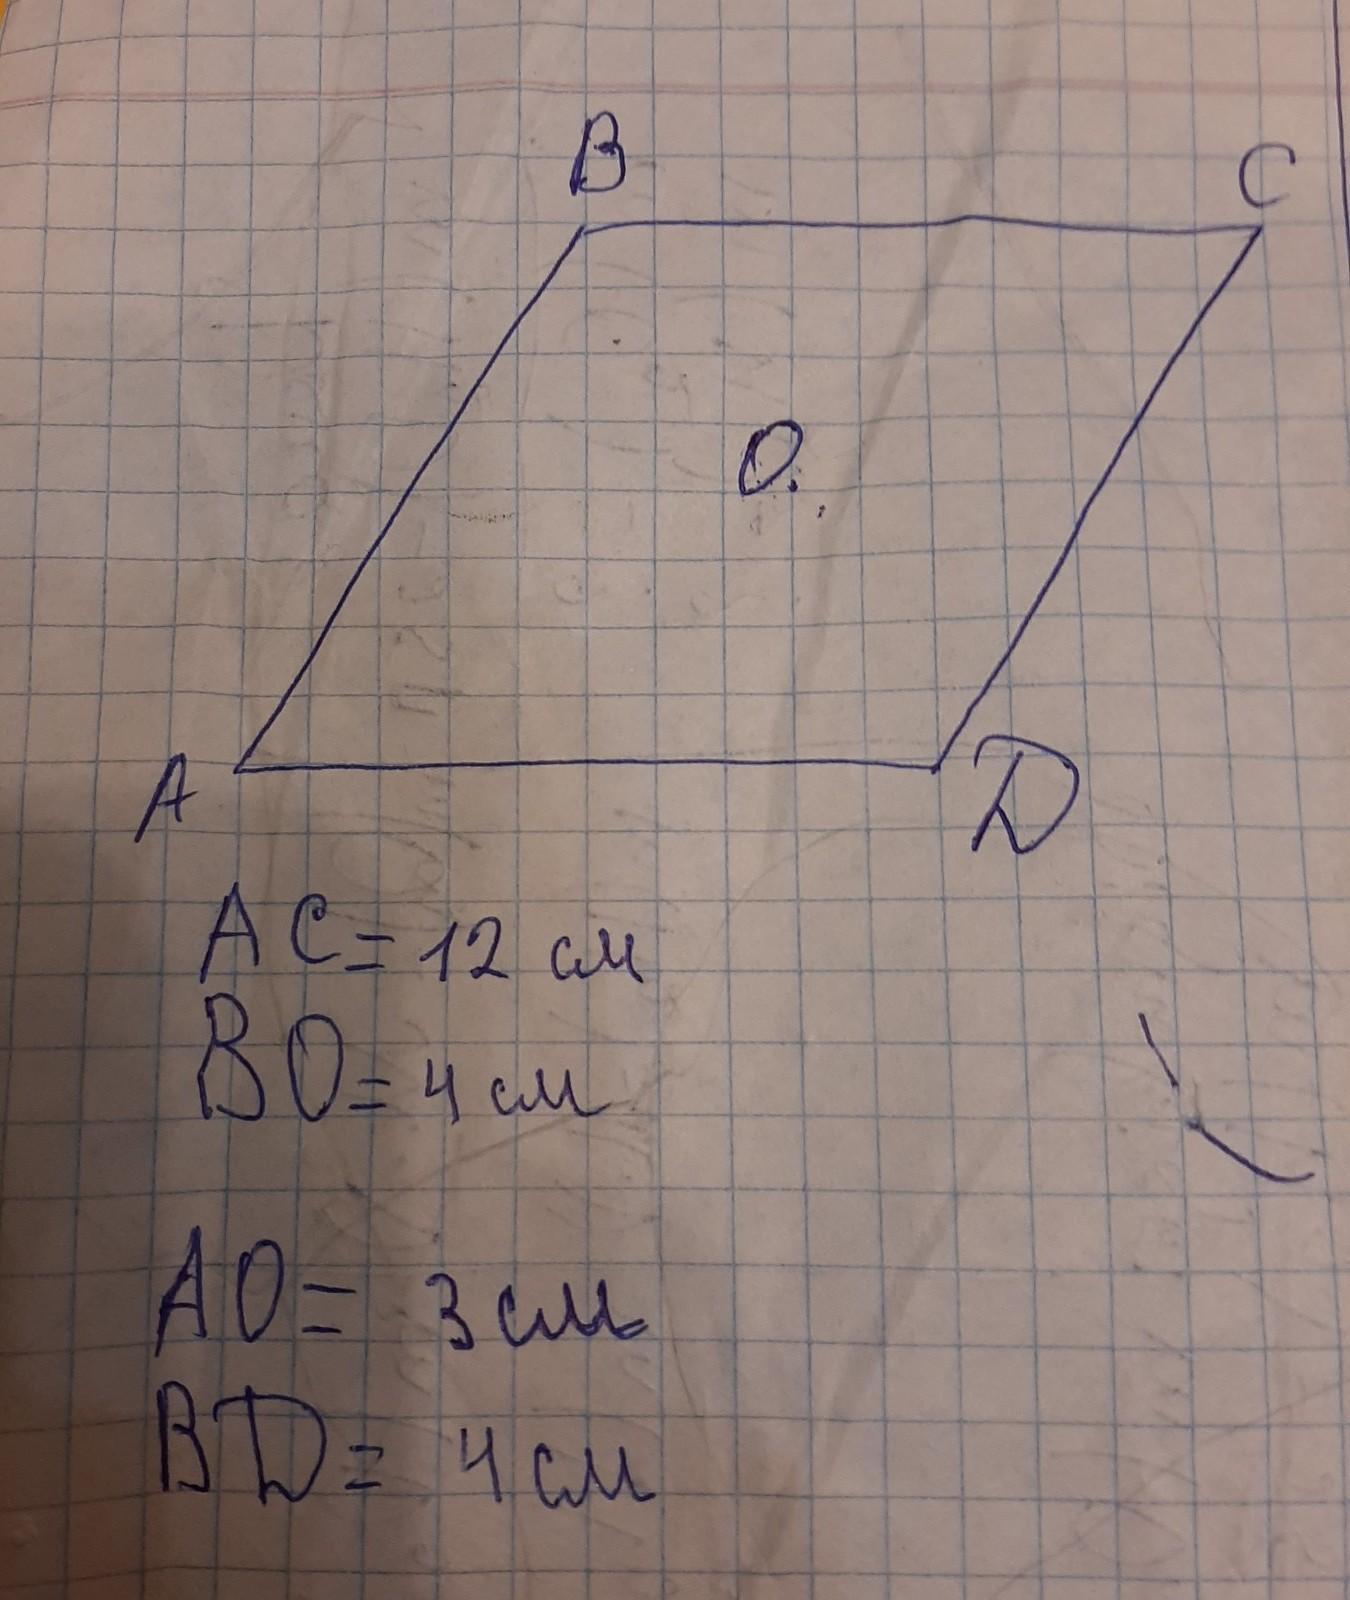 B
C
O.
A
D
AC = 12 см
BO = 4 см
AO = 3 см
BD = 4 см